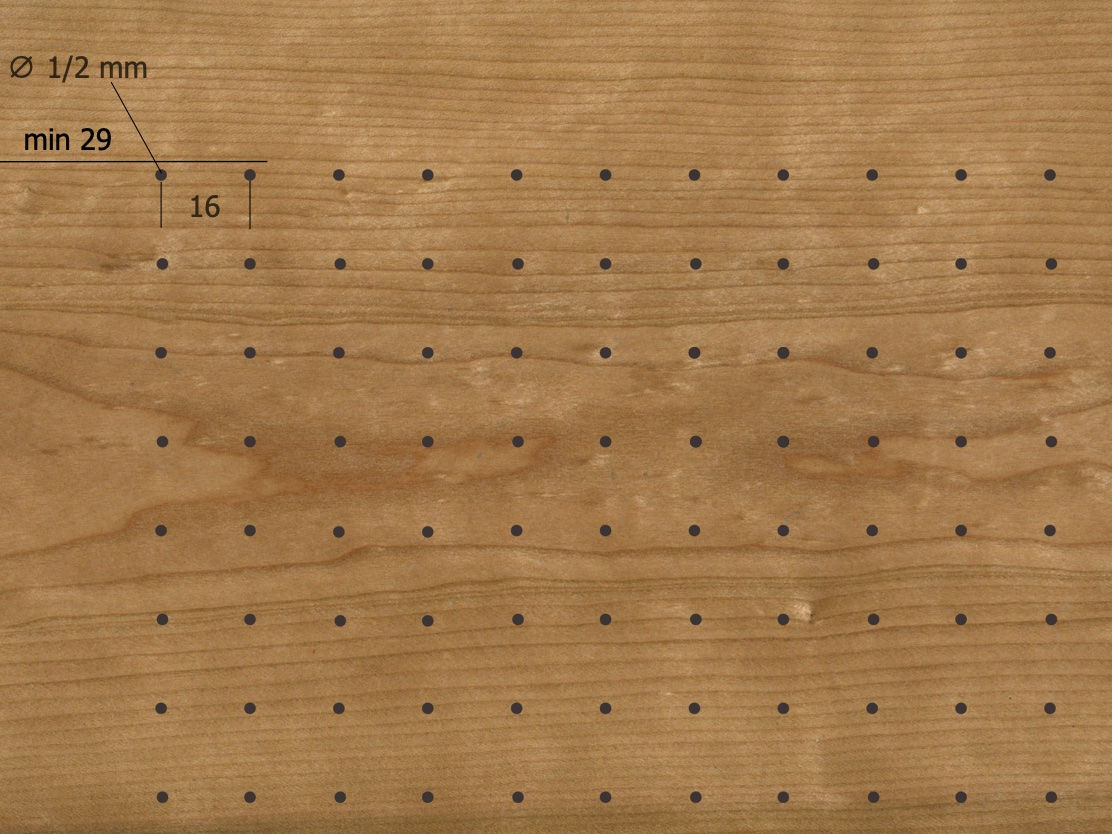 ∅ 1/2 mm
min 29
16